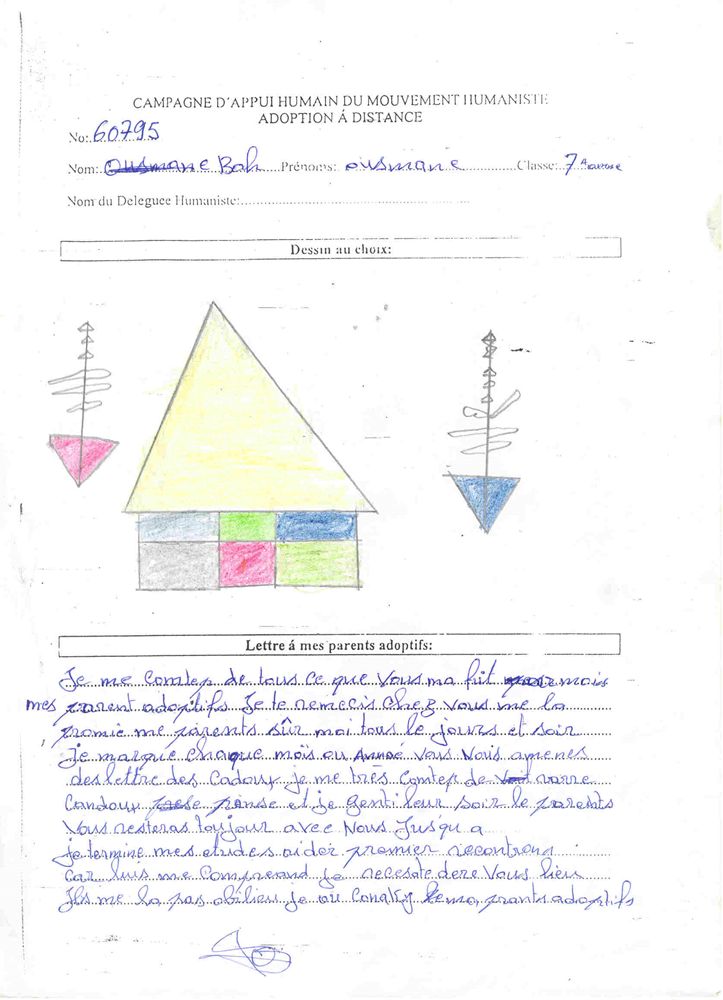 CAMPAGNE D'APPUI HUMAIN DU MOUVEMENT HUMANISTE
ADOPTION Á DISTANCE
No: 60795
Nom: Ousmane Bah Prénoms: ousmane Classe: 7 A
Nom du Deleguee Humaniste:
Dessin au choix:
Lettre á mes parents adoptifs:
Je me comtep de tous ce que Vous ma fait mois
mes parent adoptifs Je te remecis chez Vous me la
promie me parents sûr moi tous le jours et soir
Je marque chaque mois ou Année Vous Vous amenes
des lettre des Cadoux je me très comtep de
Candoux panse et je Gentileur soir le parents
Vous resteras toujour avec Nous Jusqu a
je termine mes etudes aider premier recontrons
Car luis me Comprend je necesite dere Vous lieu
Ils me la pas obilieu je ou Conakry parants adoptifs